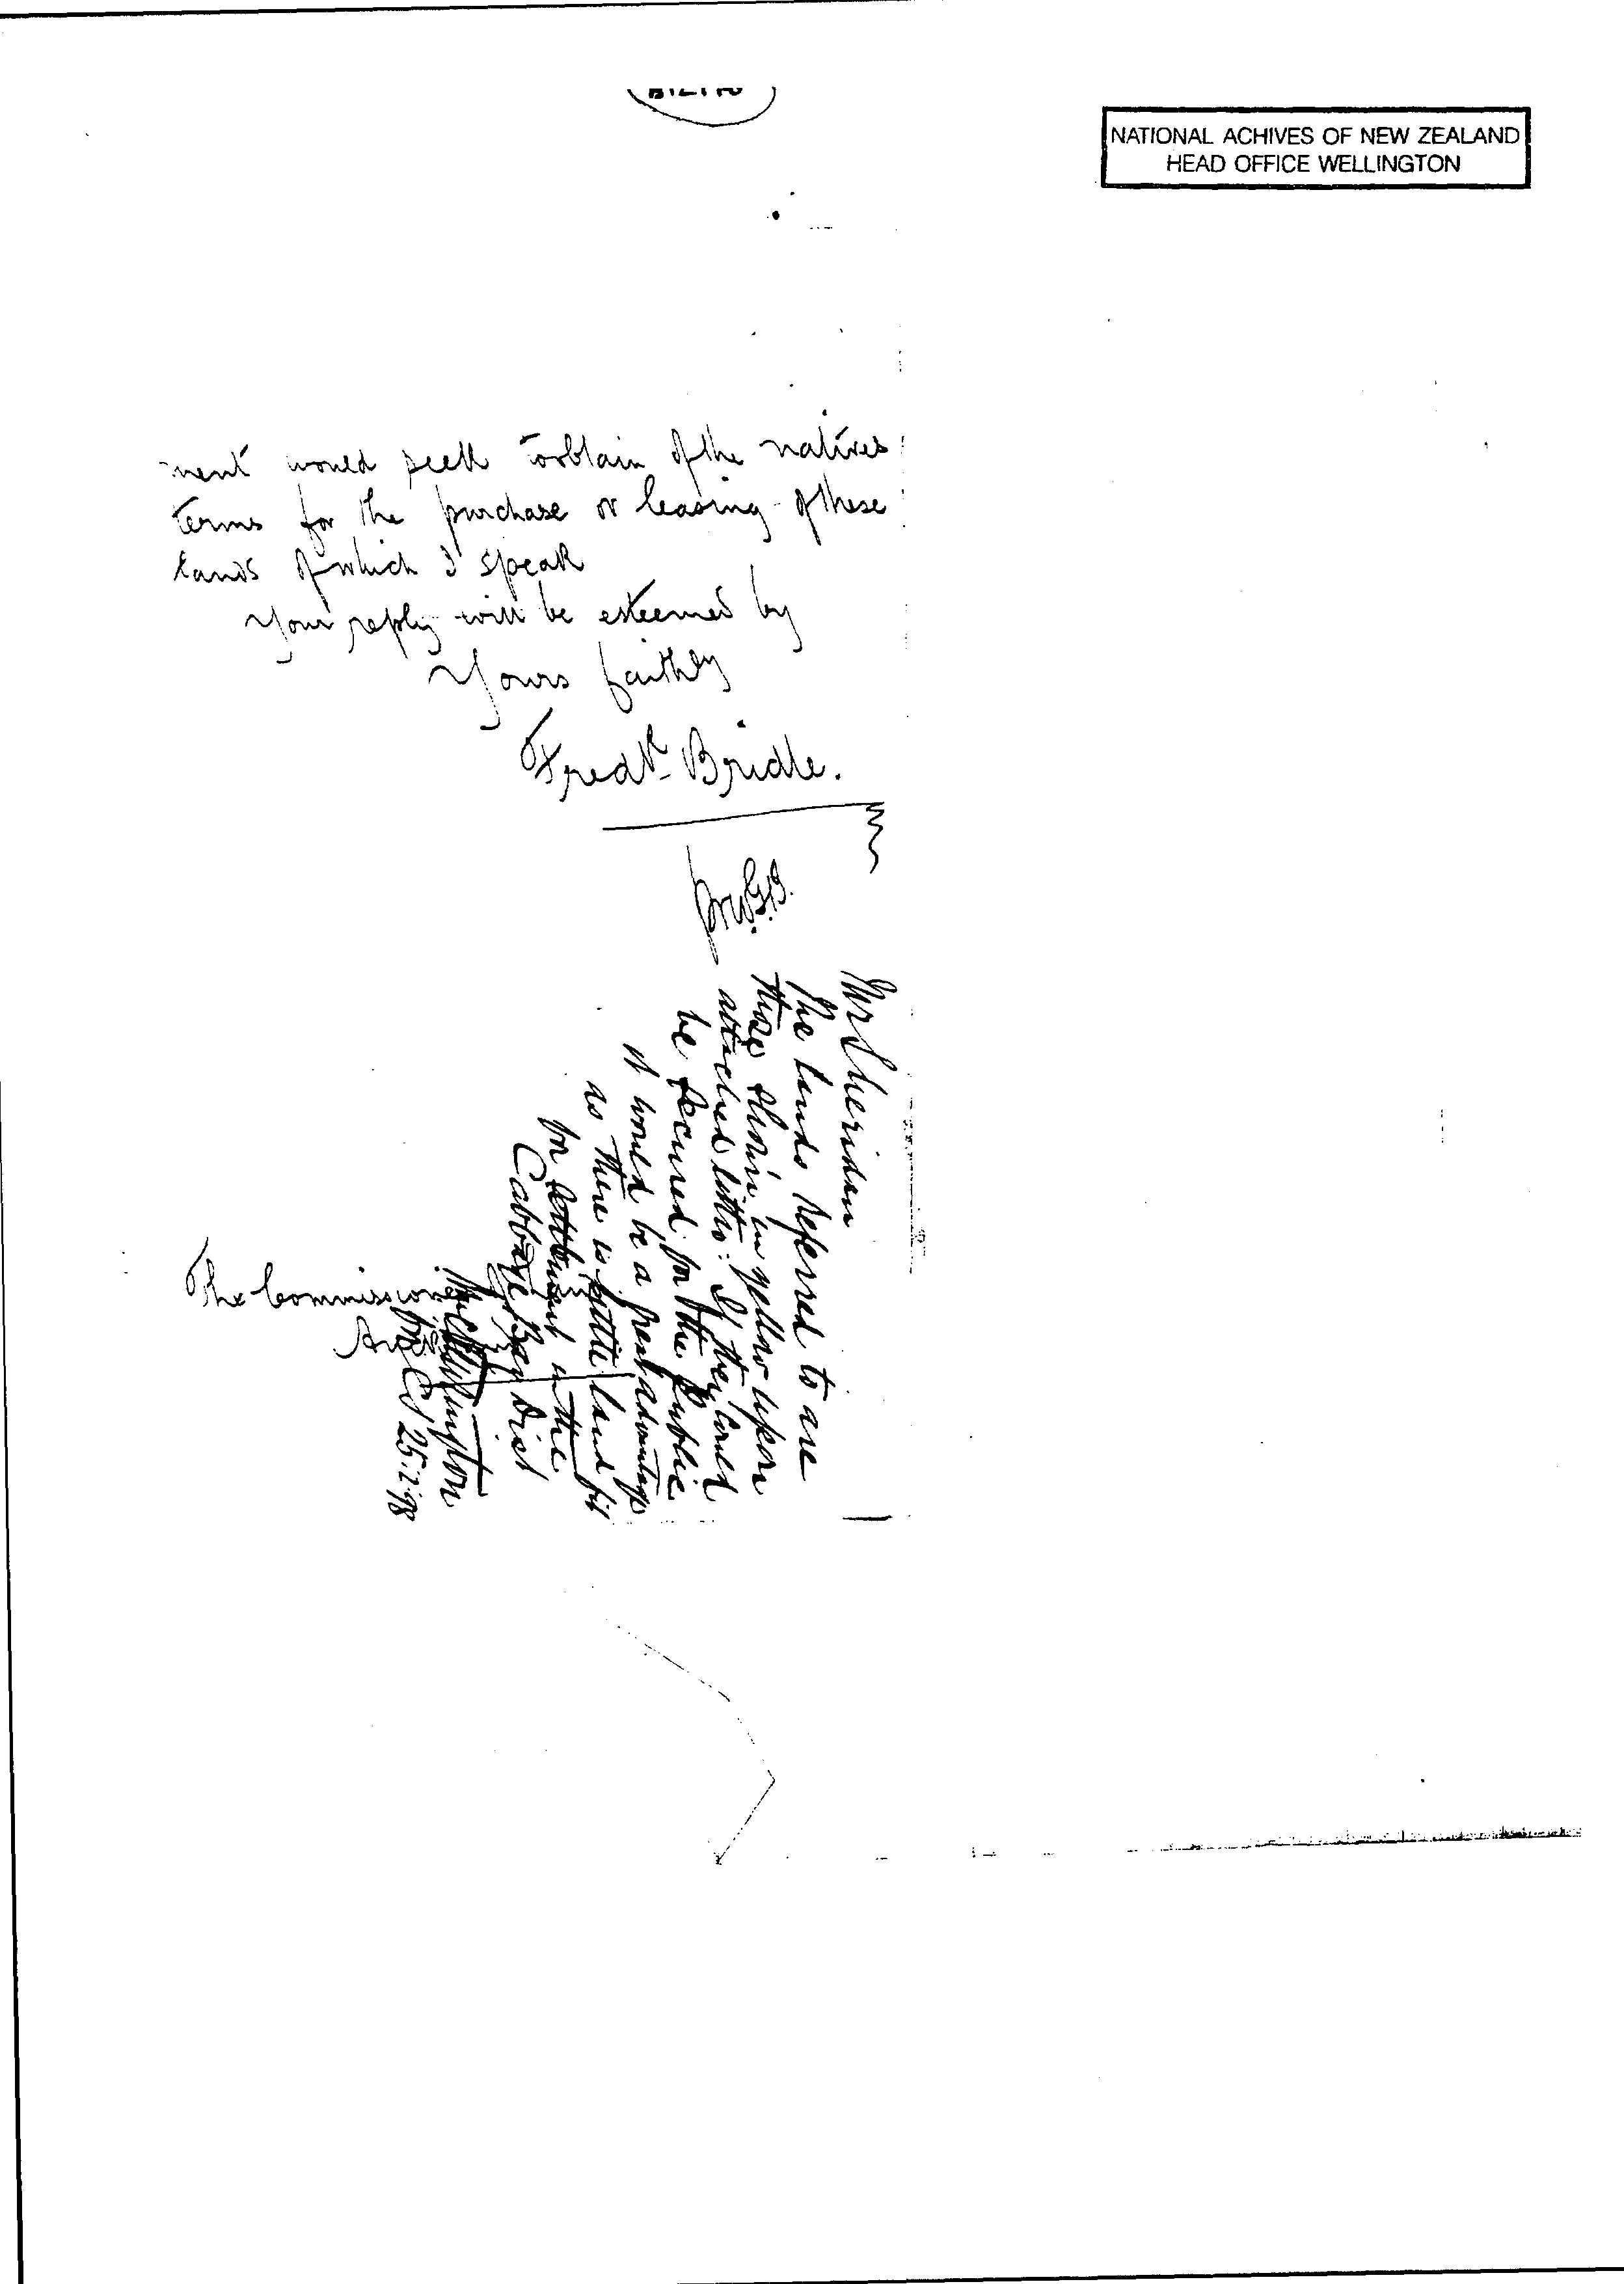 NATIONAL ACHIVES OF NEW ZEALAND
HEAD OFFICE WELLINGTON
ment would seek to obtain of the natives
terms for the purchase or leasing of these
lands of which I speak
Your reply will be esteemed by
Yours faithly
Fredk Bridle.
Mr Sheridan
The lands referred to are
those shown in yellow upon
attached litho. If they could
be secured for the public
it would be a great advantage
as there is little land fit
for settlement in the
Cabbage Bay Dist
25.2.98
The Commissioner